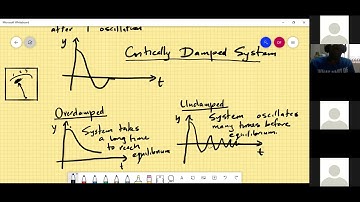 Microsoft Whiteboard
after 1 oscillation
Critically Damped System
y
t
Overdamped
y
System takes
a long time
to reach
equilibrium
t
Undamped
y
System oscillates
many times before
equilibrium.
t